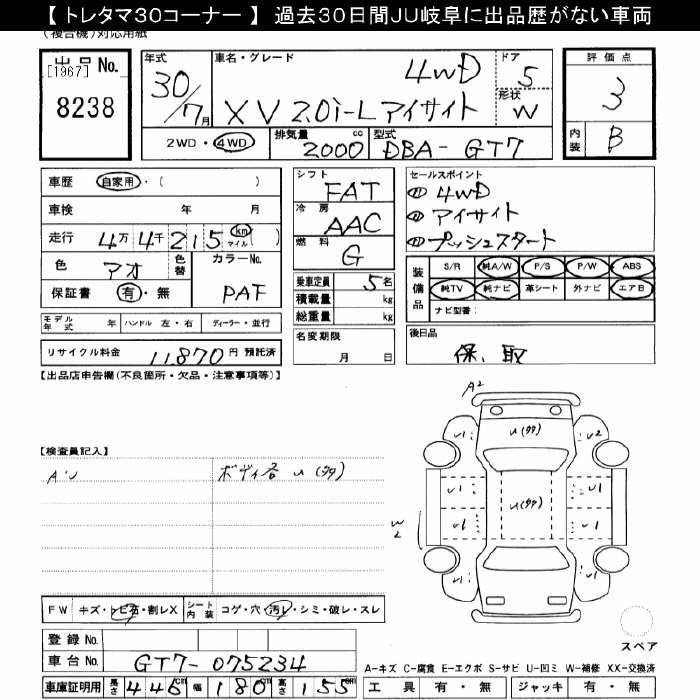 【 トレタマ30コーナー 】 過去30日間JU岐阜に出品歴がない車両
(複合機)対応用紙
出品 No.
[1967]
8238
年式
30/7月
車名・グレード
4WD
XV 2.0i-L アイサイト
ドア
5
形状
W
評価点
3
内装
B
2WD・4WD
排気量
2000
cc
型式
DBA-GT7
車歴 自家用・( )
車検 年 月
走行 4万4千215 km マイル ( )
色 アオ
色替
カラーNo.
PAF
保証書 有・無
シフト
FAT
冷房
AAC
燃料
G
乗車定員 5名
積載量 kg
総重量 kg
セールスポイント
① 4WD
② アイサイト
③ プッシュスタート
装備品
S/R 純A/W P/S P/W ABS
純TV 純ナビ 革シート 外ナビ エアB
ナビ型番:
モデル年式 年 ハンドル 左・右 ディーラー・並行
リサイクル料金 11,870 円 預託済
名変期限
月 日
後日品
保、取
【出品店申告欄(不良箇所・欠品・注意事項等)】
A2
U(多)
U1
U2
【検査員記入】
ボディ各 U(多)
U1
U1
U(多)
W2
U1
U1
U1
U1
FW キズ・トビ石・割レX
シート内装 コゲ・穴・汚レ・シミ・破レ・スレ
登録 No.
車台 No. GT7-075234
スペア
A-キズ C-腐食 E-エクボ S-サビ U-凹ミ W-補修 XX-交換済
車庫証明用 長さ 446cm 幅 180cm 高さ 155cm
工具 有・無 ジャッキ 有・無